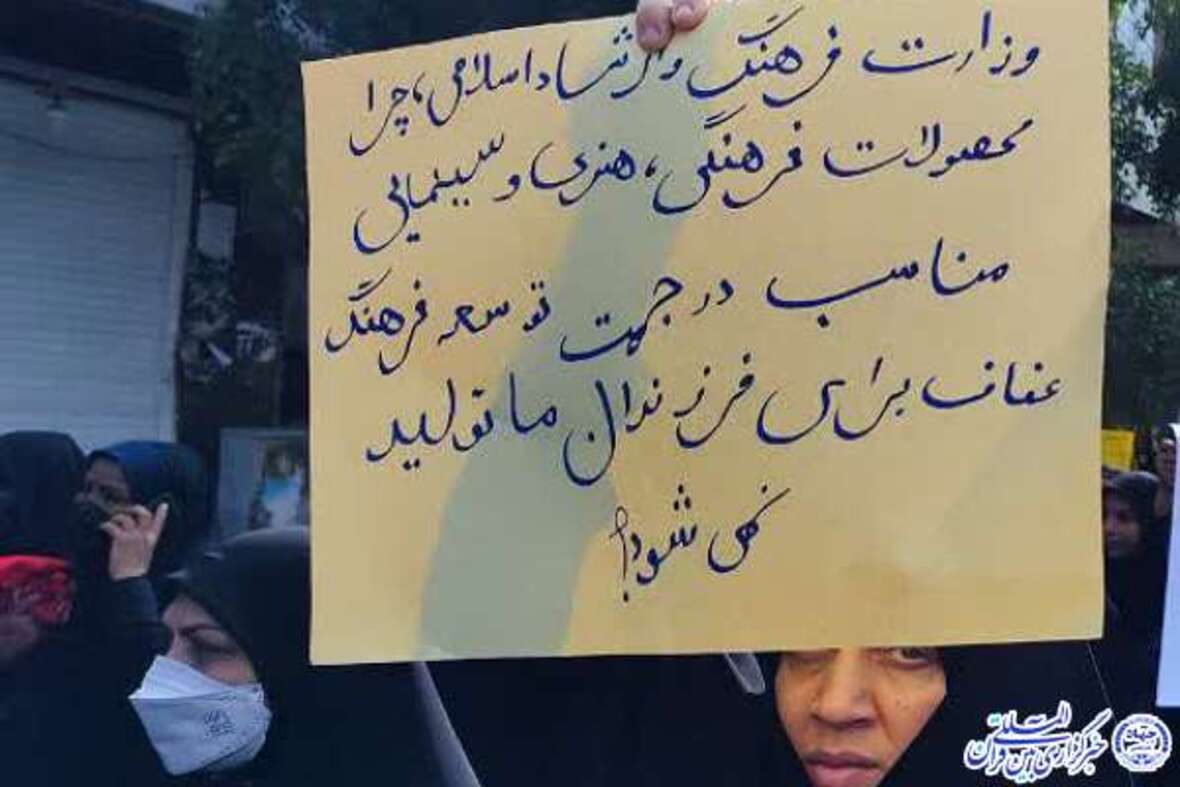 وزارت فرهنگ و ارشاد اسلامی، چرا
محصولات فرهنگی، هنری و سینمایی
مناسب در جهت توسعه فرهنگ
عفاف برای فرزندان ما تولید
نمی شود؟
خبرگزاری بین المللی قرآن